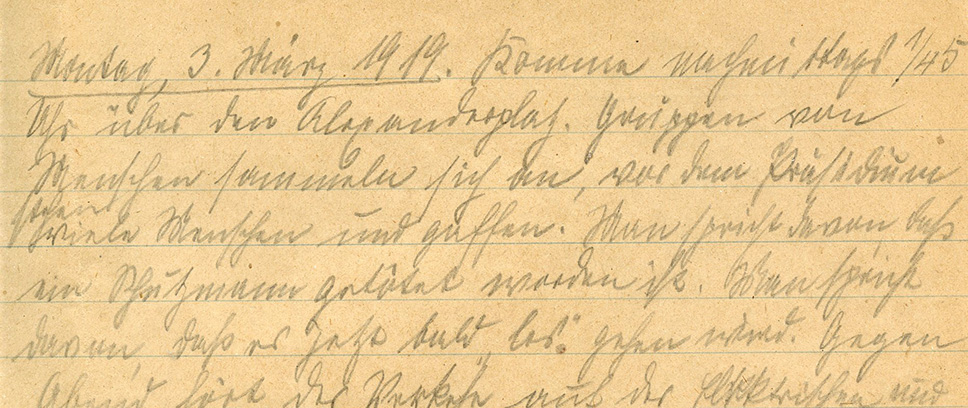 Montag, 3. März 1919. Komme nachmittags 1/45
Uhr über den Alexanderplatz. Gruppen von
Menschen sammeln sich an, vor dem Präsidium
stehen
viele Menschen und gaffen. Man spricht davon daß
ein Schutzmann getötet worden ist. Man spricht
davon, daß es jetzt bald „los“ gehen wird. Gegen
Abend hört der Verkehr auf der Elektrischen und